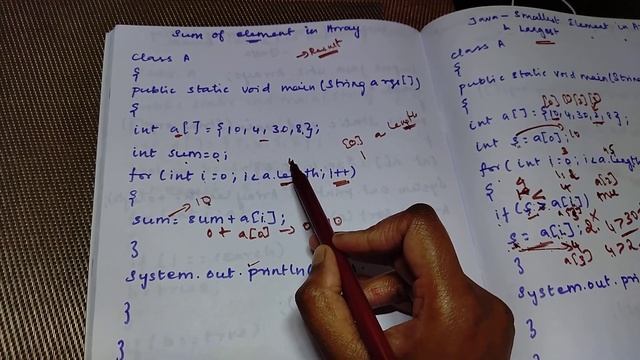 Sum of element in Array
→ Result
class A
{
public static void main(String args[])
{
int a[] = {10,4,30,8};
int sum=0;
for (int i=0; i<a.length; i++)
{
sum = sum + a[i];
0 + a[0] → 0
}
System.out.println(
}
}
[0] a length
10
Java - Smallest Element in A
& Largest
class A
{
public static void main(Strin
{
int a[] = {10,4,30,8};
int s=a[0];
for (int i=0; i<a.leng
{
if (s > a[i])
s = a[i];
}
System.out.pri
}